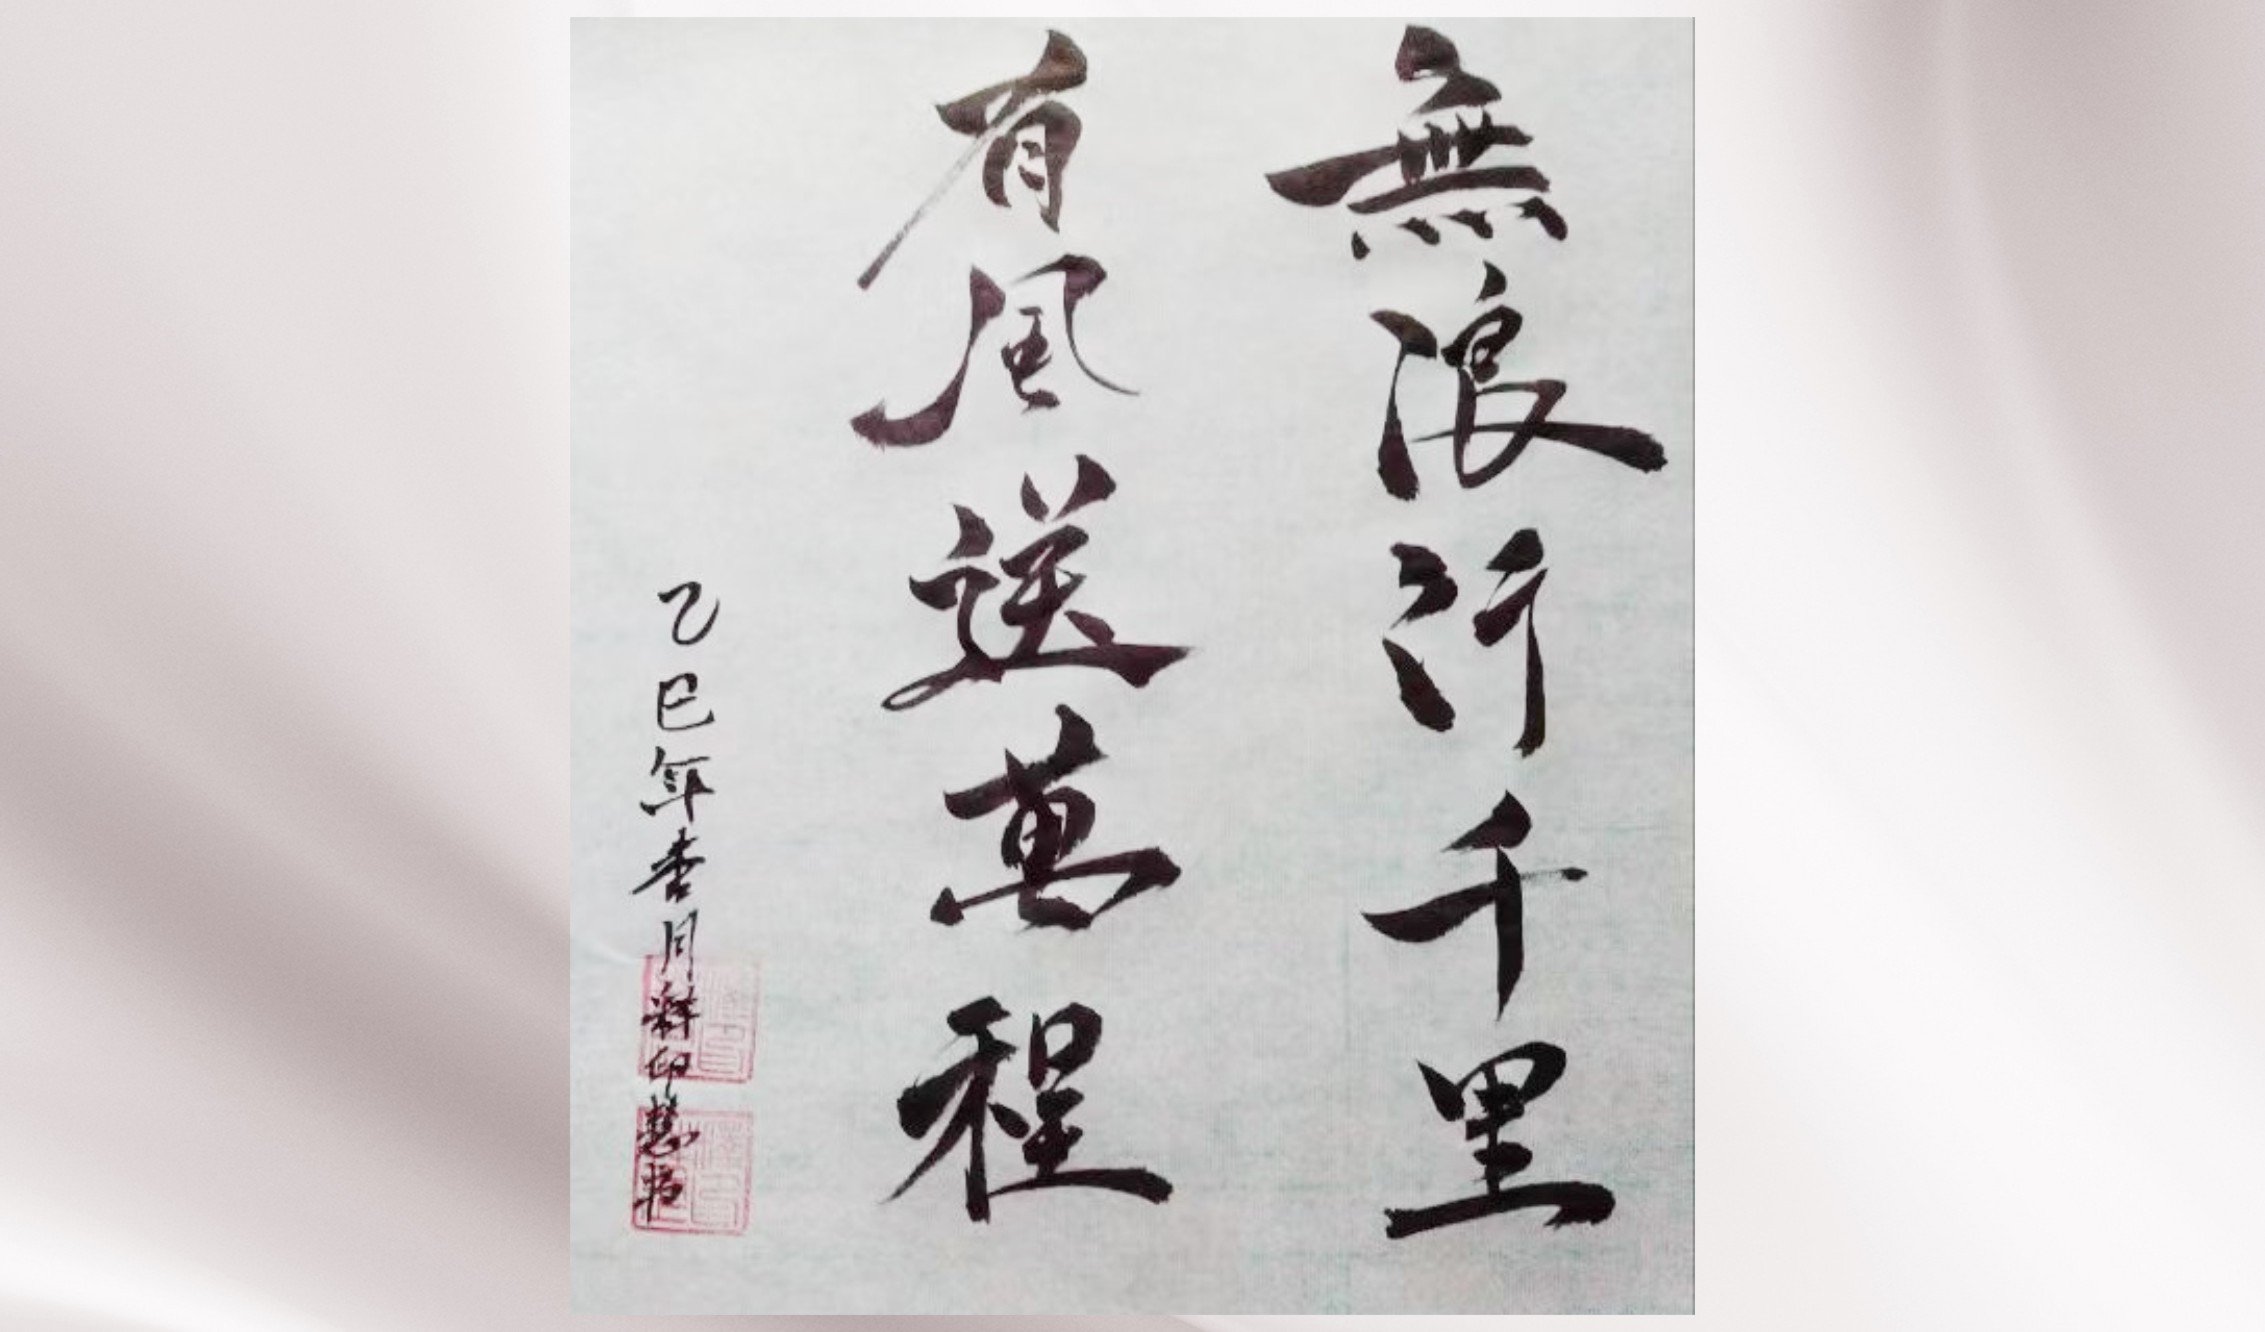 無浪行千里
有風送萬程
乙巳年杏月釋印慧書